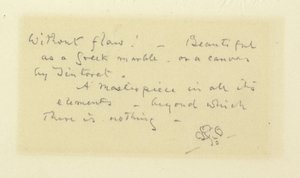 Without flaw! — Beautiful
as a Greek marble - or a canvas
by Tintoret -
A masterpiece in all its
elements - beyond which
there is nothing -